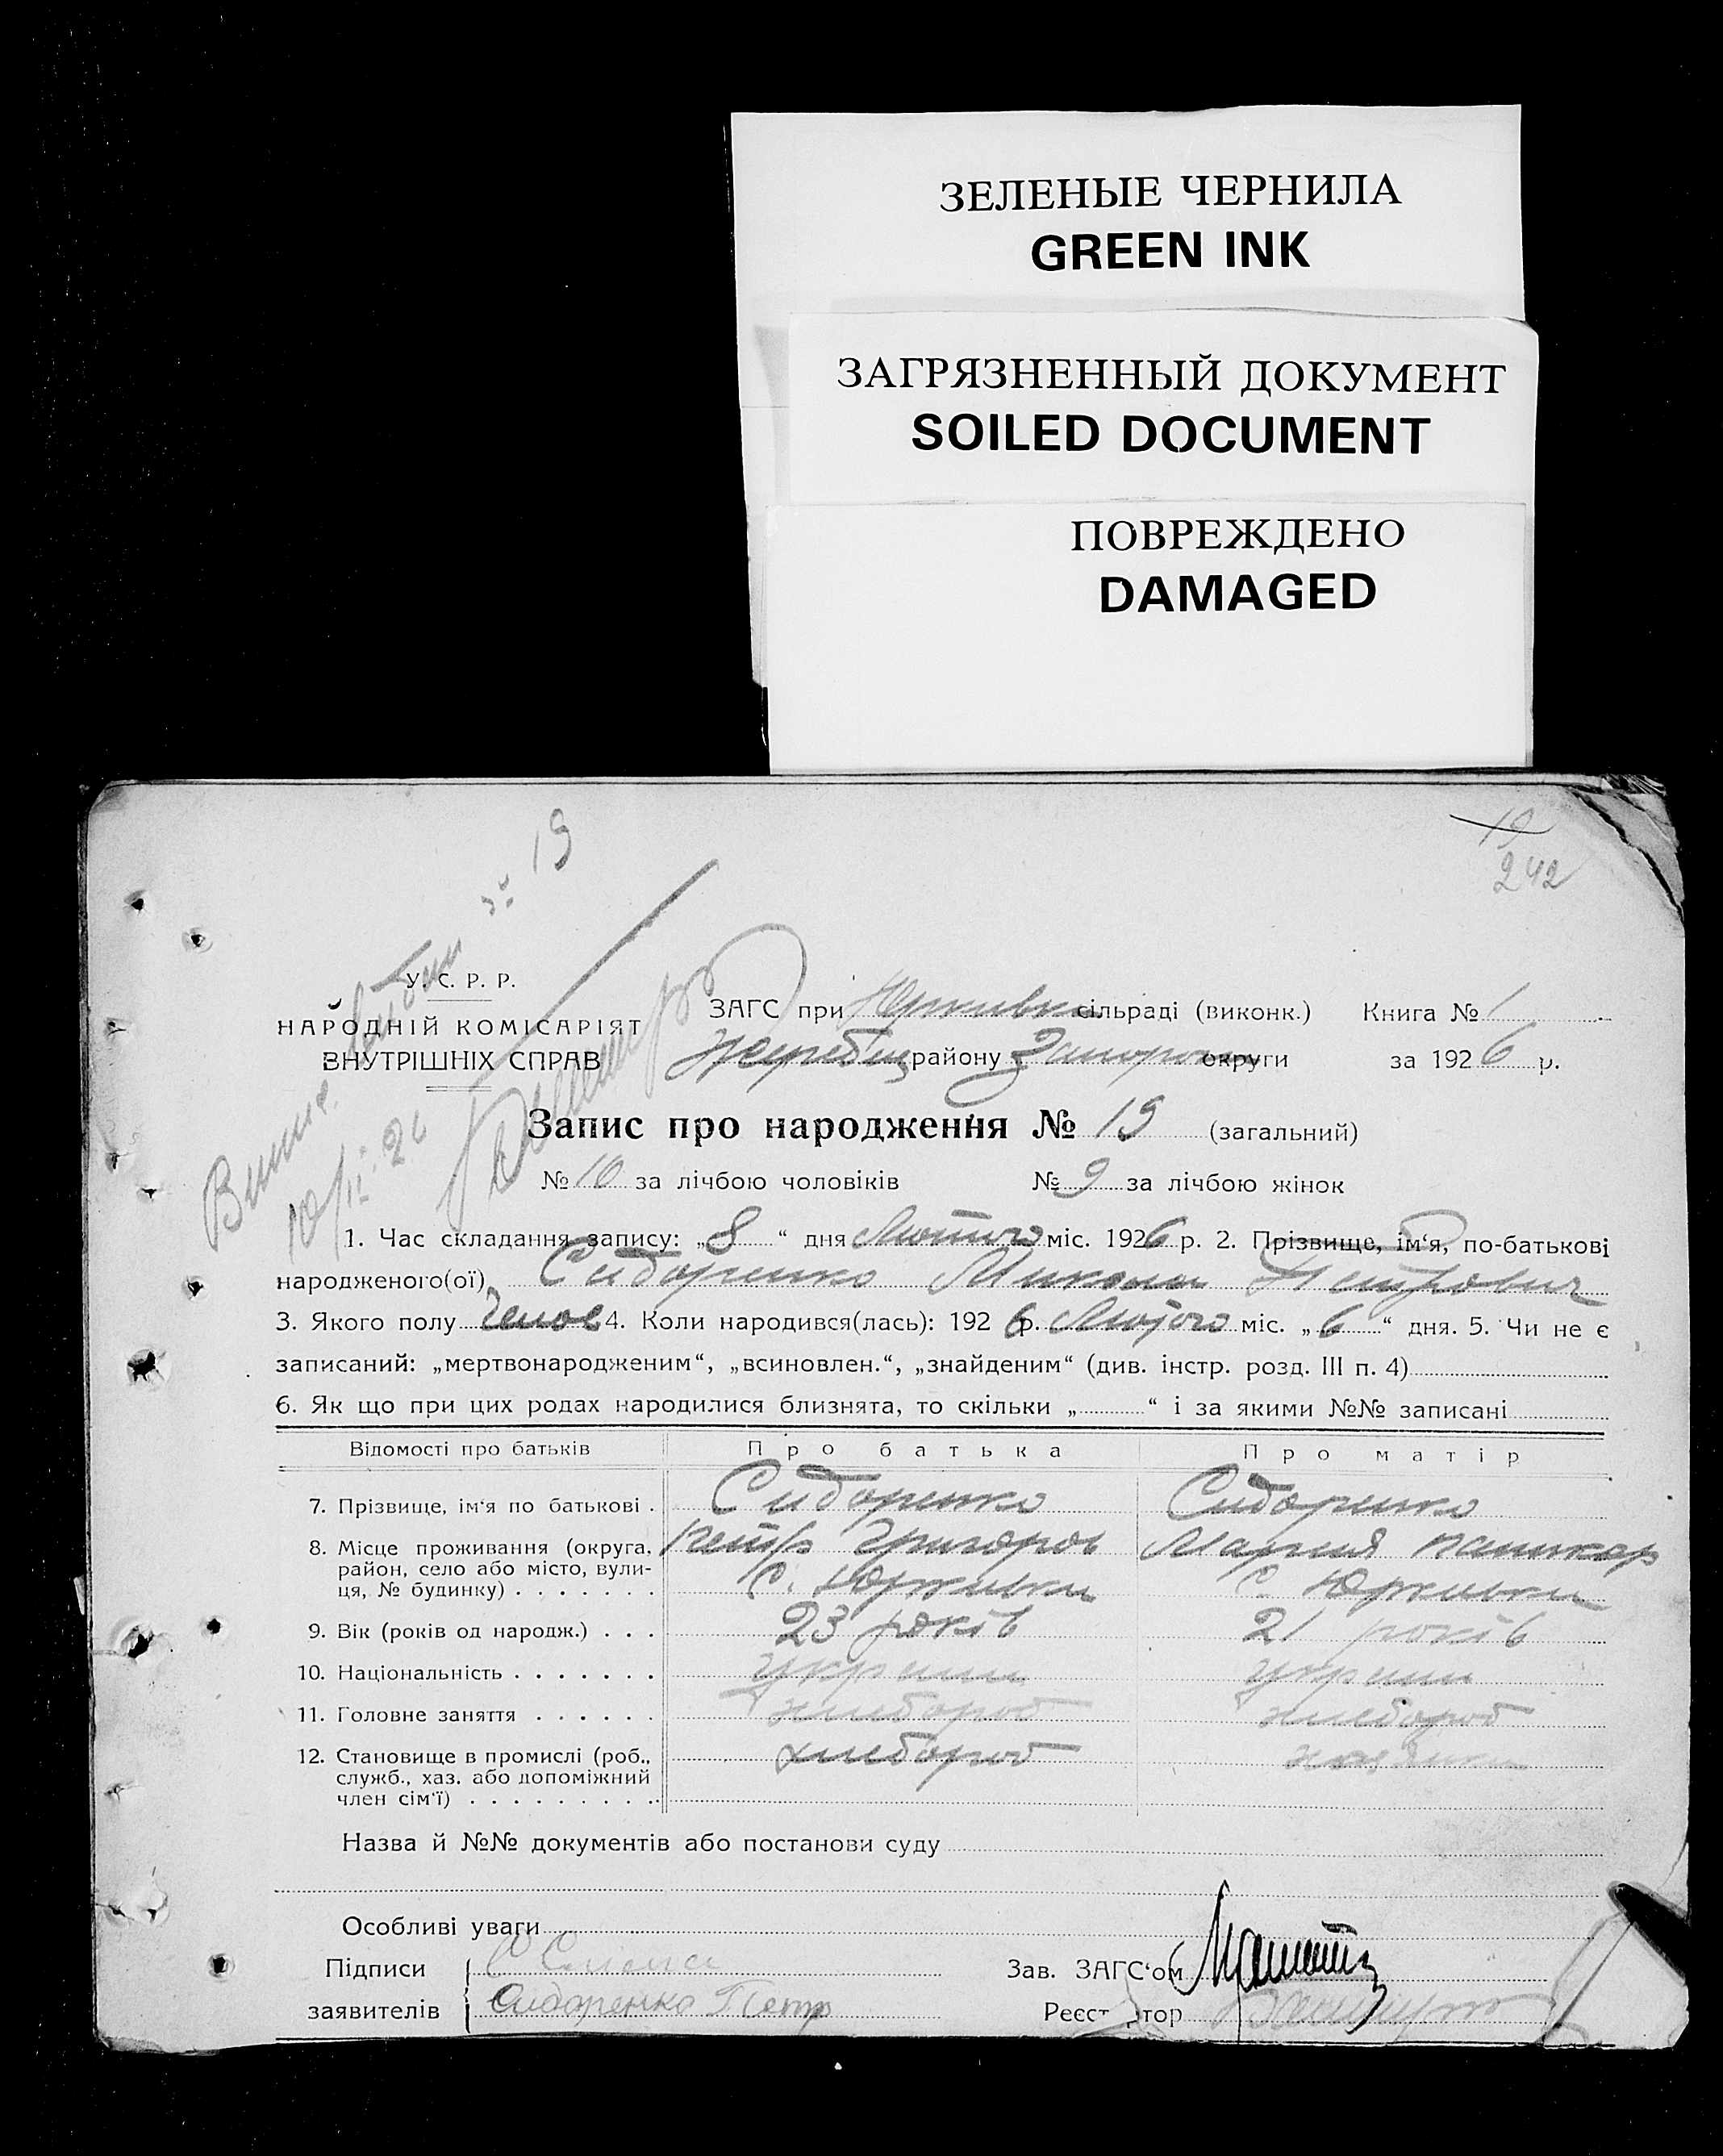 ЗЕЛЕНЫЕ ЧЕРНИЛА
GREEN INK
ЗАГРЯЗНЕННЫЙ ДОКУМЕНТ
SOILED DOCUMENT
ПОВРЕЖДЕНО
DAMAGED
19
19
242
У. С. Р. Р.
НАРОДНІЙ КОМІСАРІЯТ
ВНУТРІШНІХ СПРАВ
ЗАГС при Юрківка сільраді (виконк.) Книга № 1
Жеребец району Запорож округи за 1926 р.
10/II-26
Запис про народження № 19 (загальний)
№ 10 за лічбою чоловіків № 9 за лічбою жінок
1. Час складання запису: „8“ дня Лютого міс. 1926 р. 2. Прізвище, ім‘я, по-батькові
народженого(ої) Сидоренко Микола Петрович
3. Якого полу 4. Коли народився(лась): 1926 р. Лютого міс. „6“ дня. 5. Чи не є
записаний: „мертвонародженим“, „всиновлен.“, „знайденим“ (див. інстр. розд. III п. 4)
6. Як що при цих родах народилися близнята, то скільки „ “ і за якими №№ записані
Відомості про батьків Про батька Про матір
7. Прізвище, ім‘я по батькові . Сидоренко Сидоренко
Петр Григоров Мария
8. Місце проживання (округа, район, село або місто, вули-ця, № будинку) . . . . . . . С. Юрківка С. Юрківка
9. Вік (років од народж.) . . . 23 років 21 років
10. Національність . . . . . . . україн україн
11. Головне заняття . . . . . . хлебороб хлебороб
12. Становище в промислі (роб., служб., хаз. або допоміжний член сім‘ї) . . . . . . . . . . хлебороб
Назва й №№ документів або постанови суду
Особливі уваги
Підписи
заявителів Сидоренко Петр
Зав. ЗАГС‘ом
Реєст тор